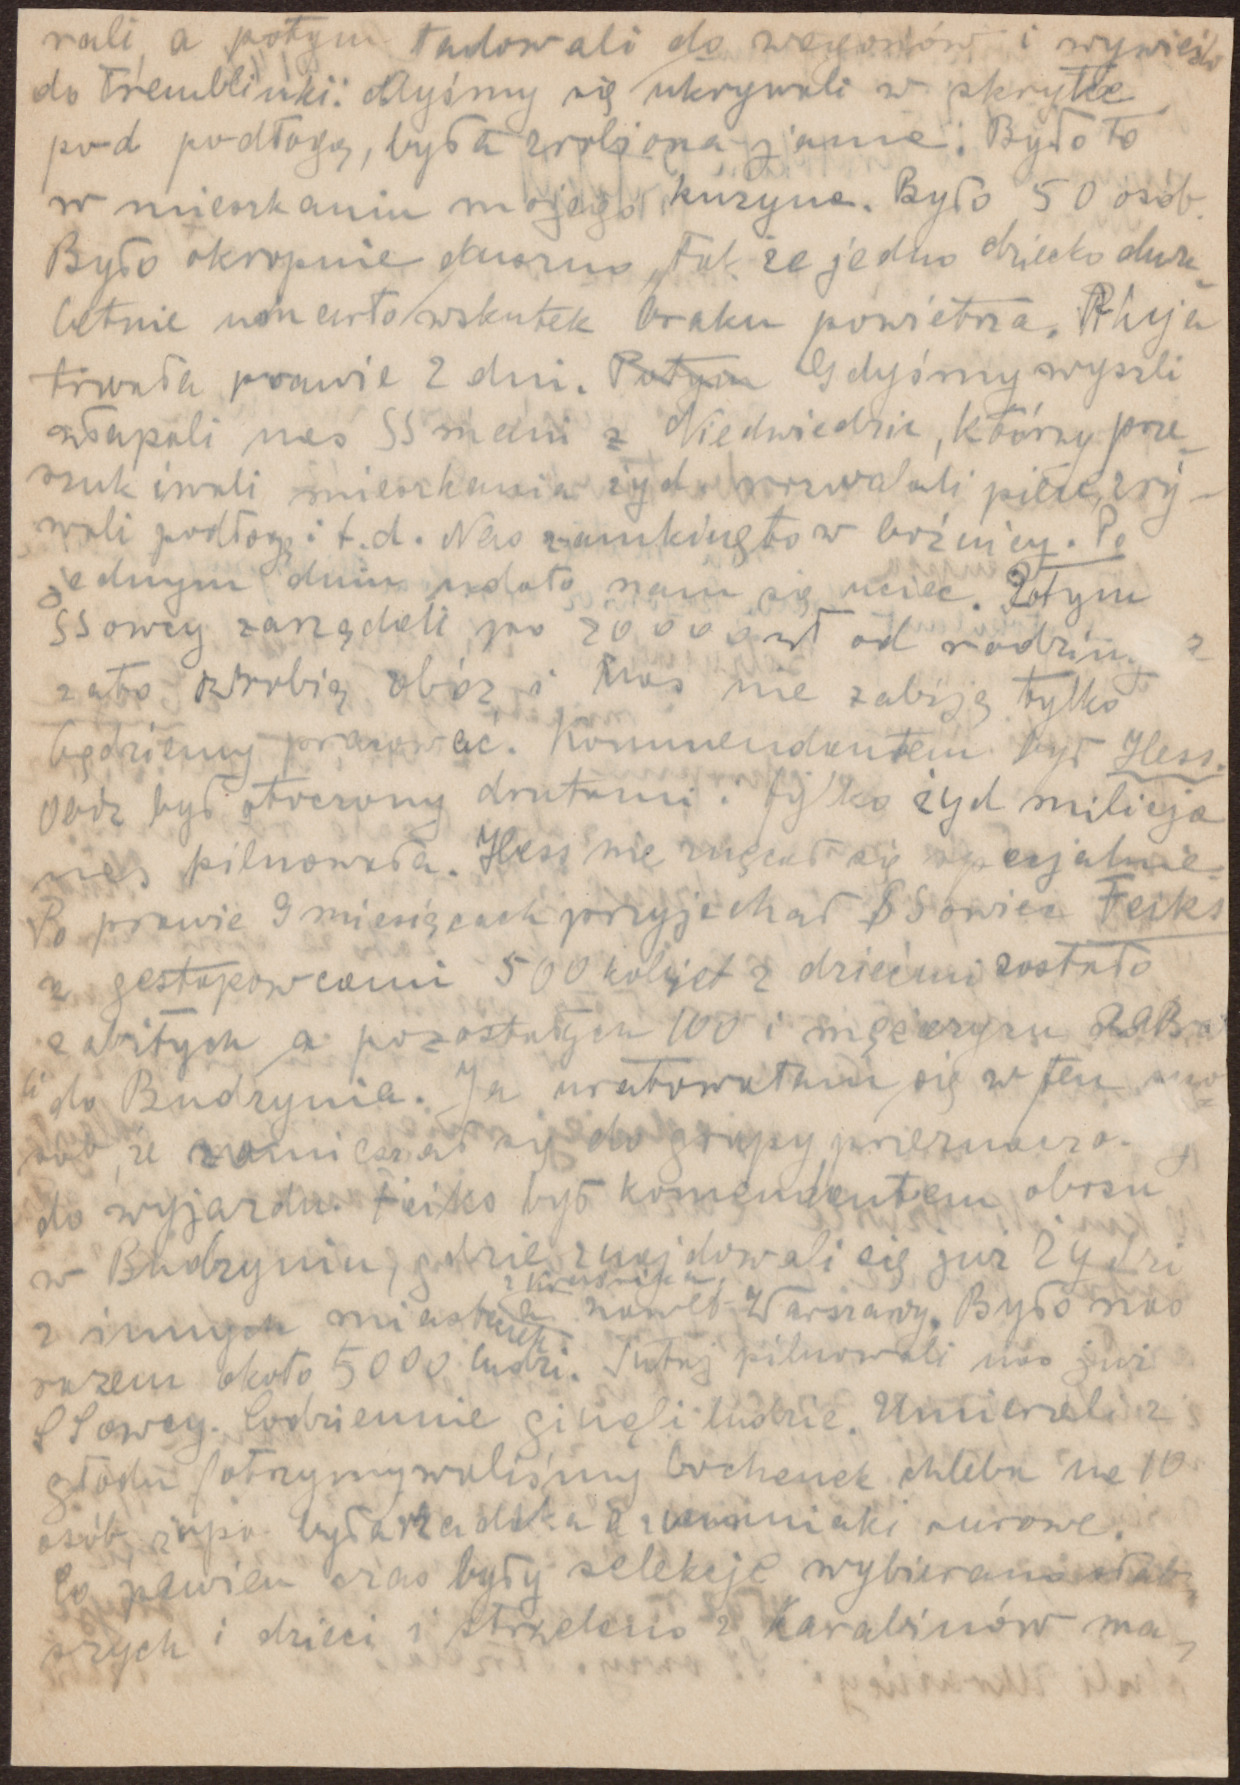 rali, a potym ładowali do wagonów i wywieźli
do Tremblinki. Myśmy się ukrywali w skrytce
pod podłogą, była zrobiona jama. Było to
w mieszkaniu mojego kuzyna. Było 50 osób.
Było okropnie duszno, tak że jedno dziecko dwu-
letnie umarło wskutek braku powietrza. Akcja
trwała prawie 2 dni. Potym Gdyśmy wyszli
złapali nas SS mani z Niedwiedzic, którzy prze-
szukiwali mieszkania żyd. rozwalali piece, zry-
wali podłogę i t.d. Nas zamknięto w bóźnicy. Po
jednym dniu udało nam się uciec. Potym
SSowcy zarządali po 20000 zł od rodziny, z
zato zrobią obóz i nas nie zabiją tylko
będziemy pracować. Kommendantem był Hess.
Obóz był otoczony drutami i tylko żyd milicja
nas pilnowała. Hess nie znęcał się specjalnie.
Po prawie 9 miesiącach przyjechał SSowiec Fejks
z gestapowcami 500 kobiet z dziećmi zostało
zabitych a pozostałych 100 i mężczyzn zabra
li do Budzynia. Ja uratowałam się w ten spo
sób, że zamieszał się do grupy przeznaczo-
do wyjazdu. Fejks był komendantem obozu
w Budzyniu, gdzie znajdowali się już Żydzi
z Kraśnika
z innych miasteczek a nawet Warszawy. Było nas
razem około 5000 ludzi. Tutaj pilnowali nas już
SSowcy. Codziennie ginęli ludzie. Umierali z
głodu (otrzymywaliśmy bochenek chleba na 10
osób, zupa była rzadka a ziemniaki surowe.
Co pewien czas były selekcje wybierano słab-
szych i dzieci i strzelano z karabinów ma-